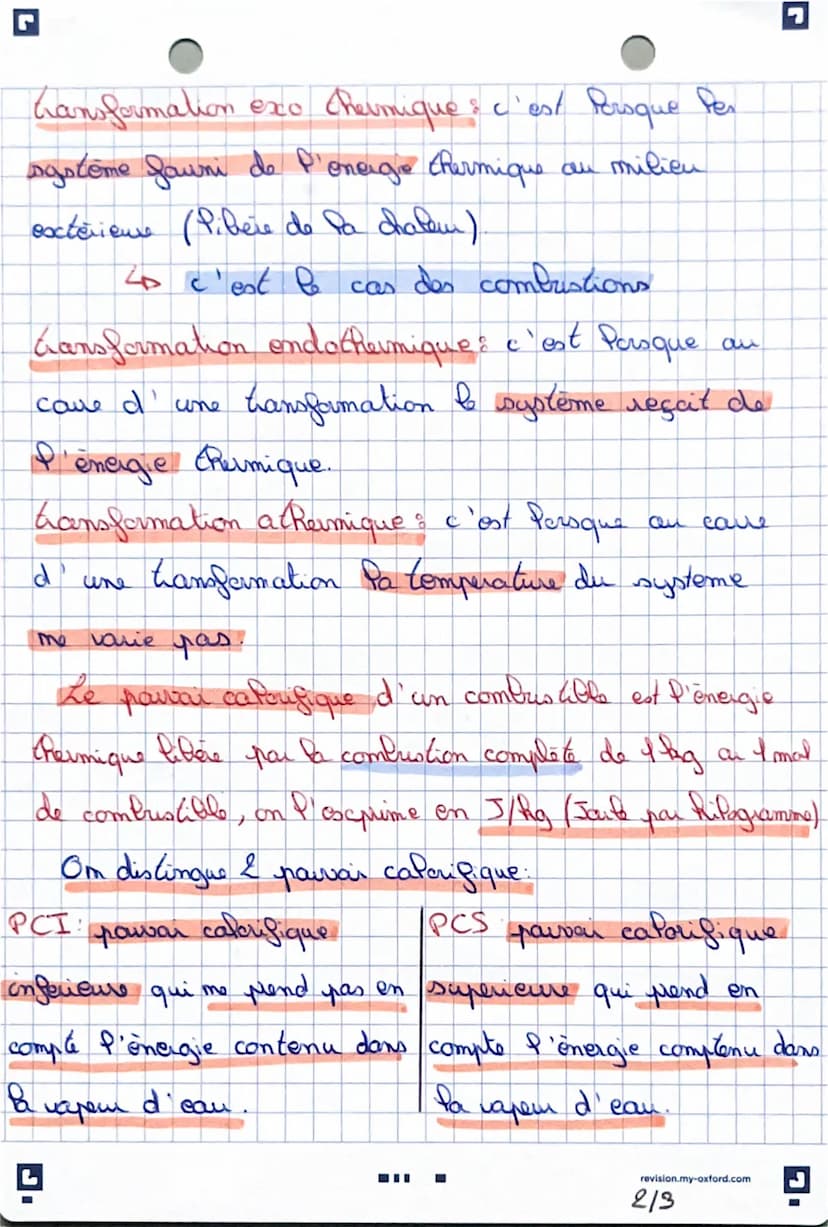 transformation exo thermique : c'est lorsque les
système fourni de l'énergie thermique au milieu
exctérieure (libère de la chaleur).
↳ c'est le cas des combustions
transformation endothermique : c'est lorsque au
cours d'une transformation le système reçoit de
l'énergie thermique.
transformation athermique : c'est lorsque au cours
d'une transformation la température du systeme
ne varie pas.
Le pouvoir calorifique d'un combustible est l'énergie
thermique libérée par la combustion complète de 1 kg ou 1 mol
de combustible, on l'exprime en J/kg (Joule par kilogramme)
On distingue 2 pouvoir calorifique :
PCI : pouvoir calorifique
inférieure qui ne prend pas en
compte l'énergie contenu dans
la vapeur d'eau.
PCS pouvoir calorifique
supérieure qui prend en
compte l'énergie comptenu dans
la vapeur d'eau.
revision.my-oxford.com
2/3